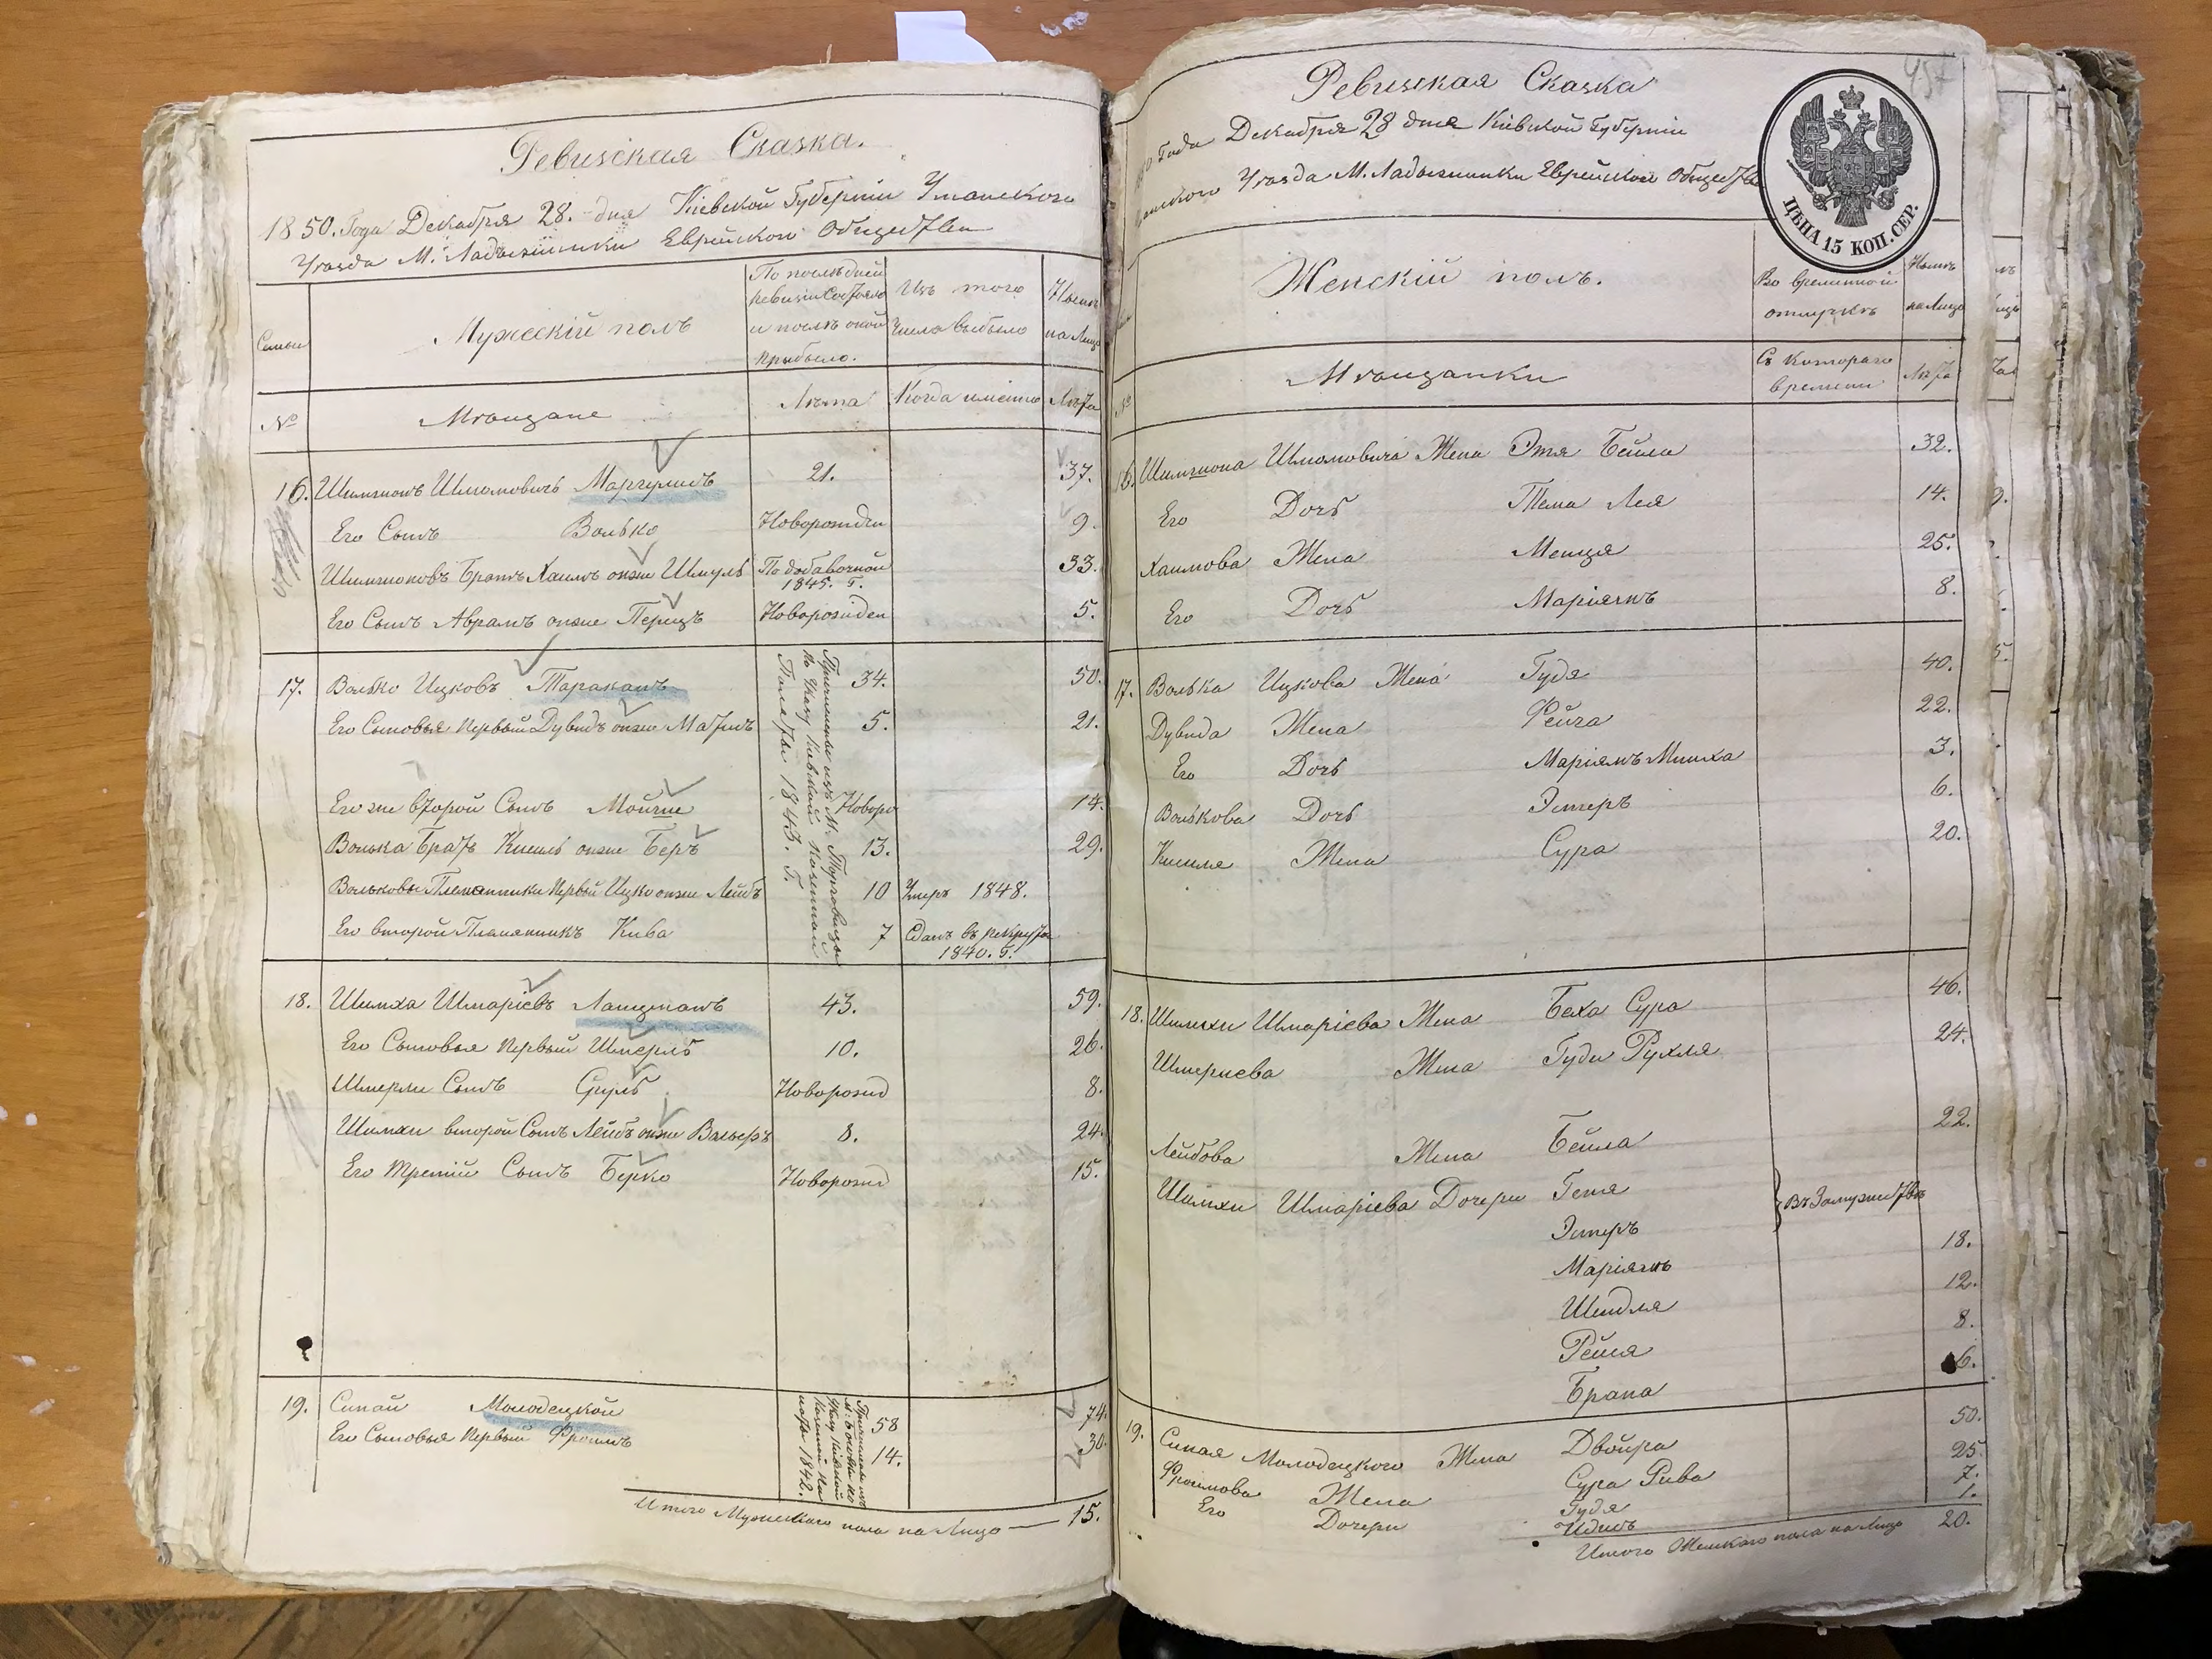 Ревизская Сказка.
1850. Года Декабря 28. дня Кіевской Губерніи Уманского
Уѣзда М. Ладыжинки Еврейского Общества
Семьи
Мужескій полъ
По послѣдней
ревизіи Состояло
и послѣ оной
прибыло.
Изъ того
числа выбыло
Нынѣ
на Лицо
№
Мѣщане
Лѣта
Когда имянно
Лѣта
16. Шимшонъ Шломовичъ Маргулисъ 21. 37.
Его Сынъ Волько Новорожден 9.
Шимшоновъ Братъ Хаимъ онже Шмуль По добавочной 1845. Г. 33.
Его Сынъ Аврамъ онже Перецъ Новорожден 5.
17. Волько Ицковъ Тараканъ 34. 50.
Его Сыновья первый Дувидъ онже Матусъ 5. 21.
Его же второй Сынъ Мойше Новоро 14.
Волька Братъ Кисиль онже Беръ 13. 29.
Вольковы Племянники первый Ицко онже Лейбъ 10 Умеръ 1848.
Его второй Племянникъ Кива 7 Сданъ въ рекруты
1840. Г.
Причислены изъ М. Торговицы
по Указу Кіевской Казенной
Палаты 1843. Г.
18. Шимха Шмаріевъ Лацманъ 43. 59.
Его Сыновья первый Шмерль 10. 26.
Шмерли Сынъ Сруль Новорожд 8.
Шимхи второй Сынъ Лейбъ онже Вольфъ 8. 24.
Его третій Сынъ Берко Новорожд 15.
19. Синай Молодецкой 58 74.
Его Сыновья первый Фроимъ 14. 30.
Итого Мужескаго пола на Лицо — 15.
Ревизская Сказка
Года Декабря 28 дня Кіевской Губерніи
Уѣзда М. Ладыжинки Еврейской Общества
ЦѢНА 15 КОП. СЕР.
Женскій полъ.
Во временной
отлучкѣ
Нынѣ
на Лицо
№
Мѣщанки
Съ котораго
времени
Лѣта
16. Шимшона Шломовича Жена Этя Бейла 32.
Его Дочь Тема Лея 14.
Хаимова Жена Менця 25.
Его Дочь Маріямъ 8.
17. Волька Ицкова Жена Гудя 40.
Дувида Жена Фейга 22.
Его Дочь Маріямъ Минха 3.
Волькова Дочь Эстеръ 6.
Кисиля Жена Сура 20.
18. Шимхи Шмаріева Жена Баха Сура 46.
Шмерлева Жена Гуди Рухля 24.
Лейбова Жена Бейла 22.
Шимхи Шмаріева Дочери Геня
Эстеръ
Въ Замужествѣ
Маріямъ 18.
Шендля 12.
Рейзя 8.
Брана 6.
19. Синая Молодецкого Жена Двойра 50.
Фроимова Жена Сура Рива 25
Его Дочери Гудя 7.
Идисъ 1.
Итого Женскаго пола на Лицо 20.